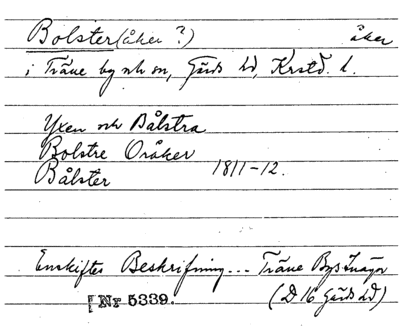 Bolster (åker ?) åker
i Träne by och sn, Gärds hd, Krstd. l.
Yxen och Bålstra
Bolstre Oråker
Bålster 1811-12.
Enskiftes Beskrifning... Träne Bys Inägor
[Nr 5339. (D 16 Gärds hd)